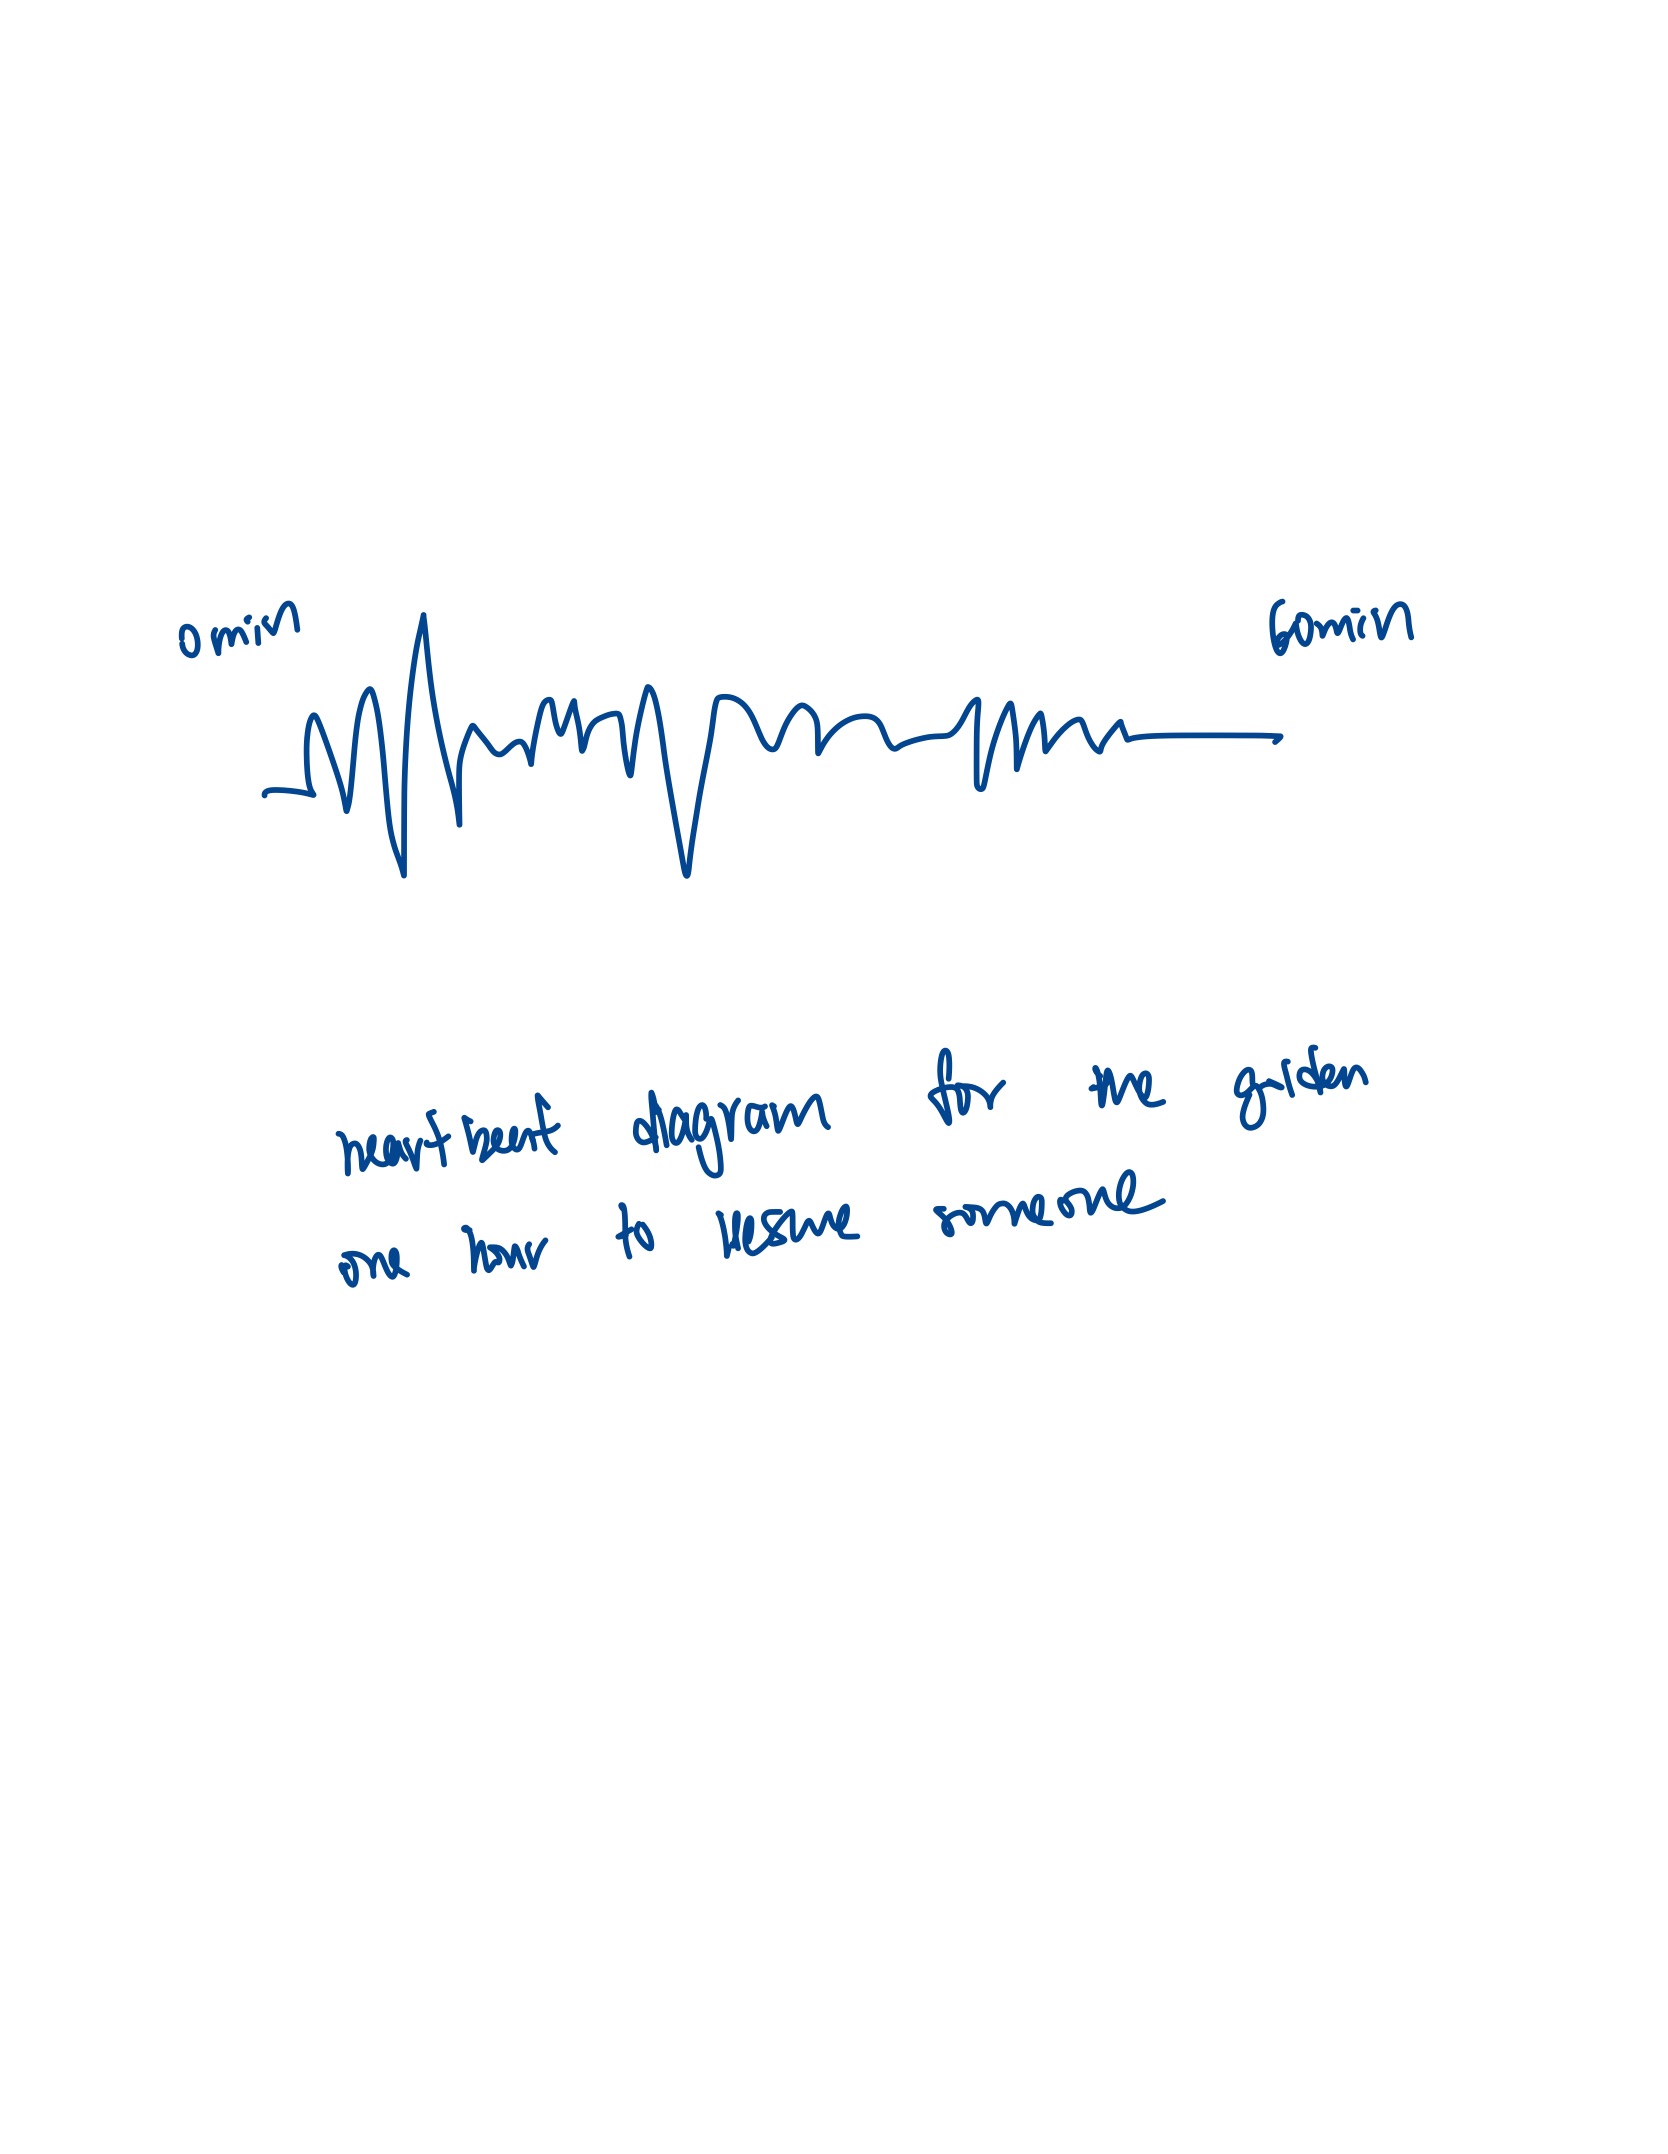 0 min
60 min
heartbeat diagram for the golden
one hour to rescue someone